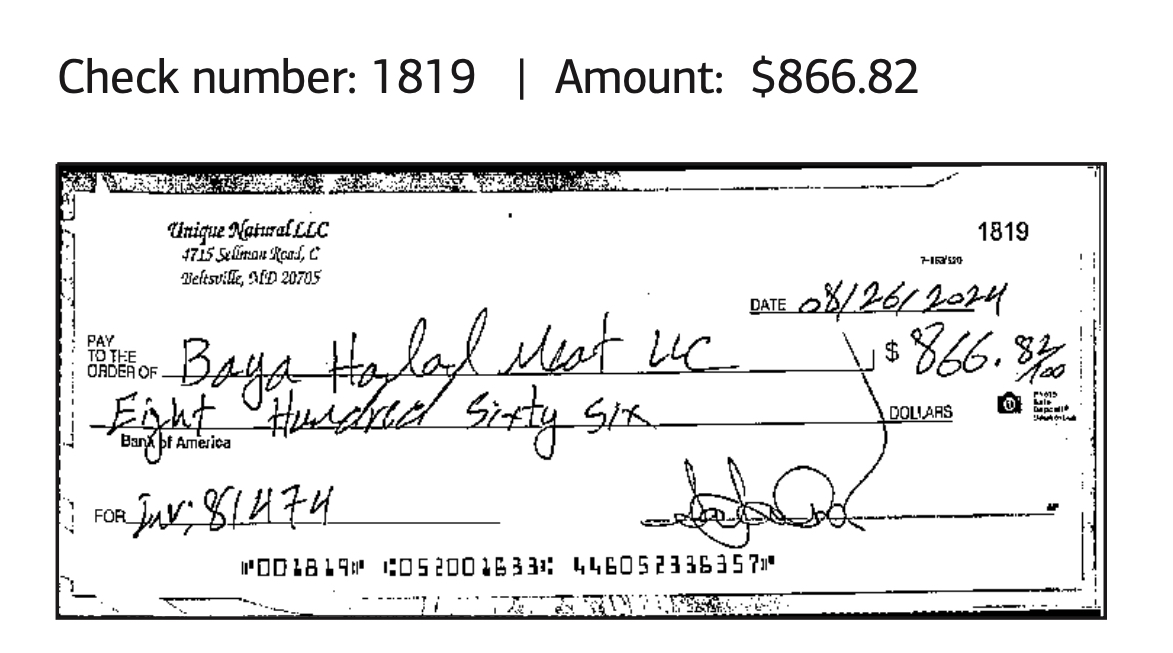 Check number: 1819 | Amount: $866.82
Unique Natural LLC
4715 Sellman Road, C
Beltsville, MD 20705
1819
7-163/520
DATE 08/26/2024
PAY TO THE ORDER OF Baya Halal Meat LLC $ 866. 82/100
Eight Hundred Sixty Six DOLLARS
Bank of America
FOR Inv; 81474
⑈001819⑈ ⑆052001633⑆ 446052336357⑈